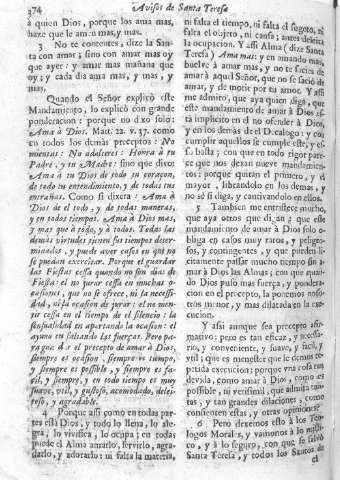 374 Avisos de Santa Teresa
à quien Dios, porque los ama mas,
haze que le amen mas, y mas.
3 No te contentes, dize la San-
ta con amar; sino con amar mas oy
que ayer: y amar mas mañana que
oy; y cada dia amar mas, y mas, y
mas.
Quando el Señor explicò este
Mandamiento, lo explicò con grande
ponderacion: porque no dixo solo:
Ama à Dios. Matt. 22. v. 37. como
en todos los demàs preceptos: No
mientas: No adulteres: Honra à tu
Padre, y tu Madre: sino que dixo:
Ama à tu Dios de todo tu coraçon,
de todo tu entendimiento, y de todas tus
entrañas. Como si dixera: Ama à
Dios de el todo, y de todas maneras,
y en todos tiempos. Ama à Dios mas,
y mas que à todo, y à todos. Todas las
demàs virtudes tienen sus tiempos deter-
minados, y puede aver casos en que no
se puedan exercitar. Porque el guardar
las Fiestas cessa quando no son dias de
Fiesta: el no jurar cessa en muchas o-
casiones, que no se ofrece, ni la necessi-
dad, ni la ocasion de jurar: el no men-
tir cessa en el tiempo de el silencio: la
sensualidad en apartando la ocasion: el
ayuno en faltando las fuerças. Pero pa-
ra que à el precepto de amar à Dios,
siempre es ocasion, siempre es tiempo,
y siempre es possible, y siempre es fa-
cil, y siempre, y en todo tiempo es muy
suave, util, y gustoso, acomodado, deley-
toso, y agradable.
4 Porque assi como en todas par-
tes està Dios, y todo lo llena, lo ale-
gra, lo vivifica, lo ocupa; en todas
puede el Alma amarlo, servirlo, agra-
darlo, y adorarlo: ni falta la materia,
ni falta el tiempo, ni falta el sugeto, ni
falta el objeto, ni cansa; antes deleita
la ocupacion. Y assi Alma (dize Santa
Teresa) Ama mas: y en amando mas,
buelve à amar mas, y no te sacies de
amar à aquel Señor, que no se saciò de
amar, y de morir por tu amor. Y assi
me admiro, que aya quien diga, que
este mandamiento de amar à Dios es-
tà implicito en el no ofenderle à Dios;
y en los demàs de el Decalogo: y con
cumplir aquellos se cumple este, y es-
so basta; con que en todo rigor pare-
ce que nos dexan nueve mandamien-
tos: porque quitan el primero, y el
mayor, librandolo en los demàs, y
no sè si diga, y cautivandolo en ellos.
5 Tambien me entristece mucho,
que aya otros que digan; que este
mandamiento de amar à Dios solo o-
bliga en casos muy raros, y peligro-
sos, y contingentes, y que pueden li-
citamente passar mucho tiempo sin a-
mar à Dios las Almas; con que quan-
do Dios puso mas fuerça, y pondera-
cion en el precepto, la ponemos noso-
tros menor, y mas dilatada en la exe-
cucion.
Y assi aunque sea precepto afir-
mativo; pero es tan eficaz, y necessa-
rio, y conveniente, y suave, y facil, y
util; que es menester que le demos re-
petida execucion: porque una cosa tan
devida, como amar à Dios, como es
possible, ni verisimil, que admita tan-
tas, y tan grandes dilaciones, como
consienten estas, y otras opiniones?
6 Pero dexemos esto à los Teo-
logos Morales, y vamonos à lo mìsti-
co, y à lo seguro, con que se salvò
Santa Teresa, y todos los Santos de
el